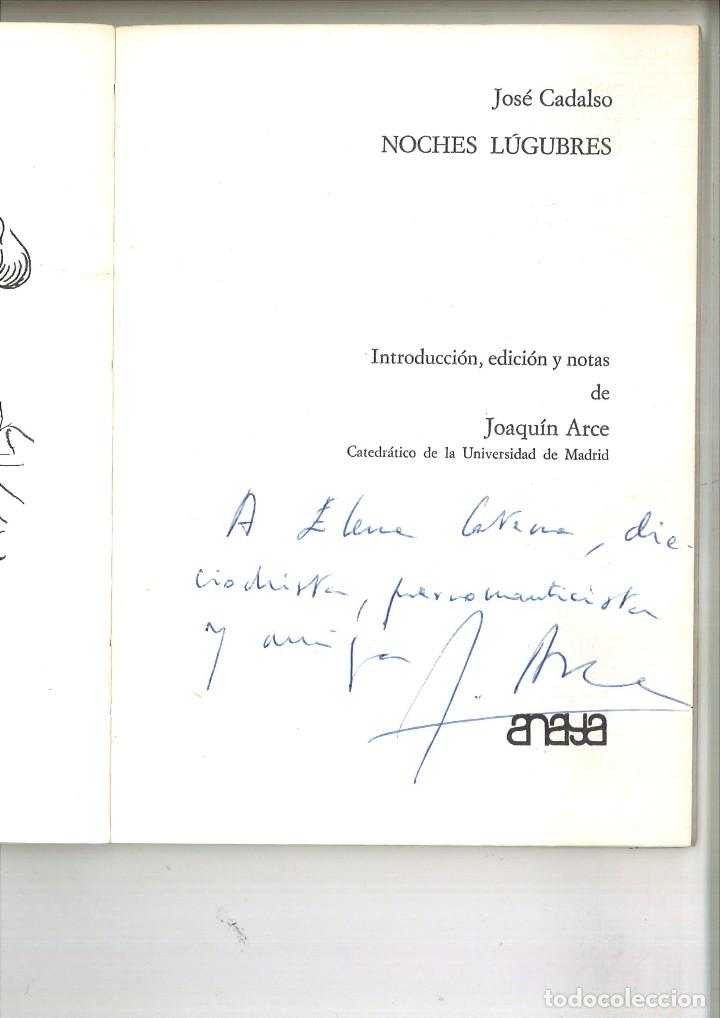 José Cadalso
NOCHES LÚGUBRES
Introducción, edición y notas
de
Joaquín Arce
Catedrático de la Universidad de Madrid
A Elena Catena, die-
ciochista, prerromanticista
y amiga J. Arce
anaya
todocoleccion